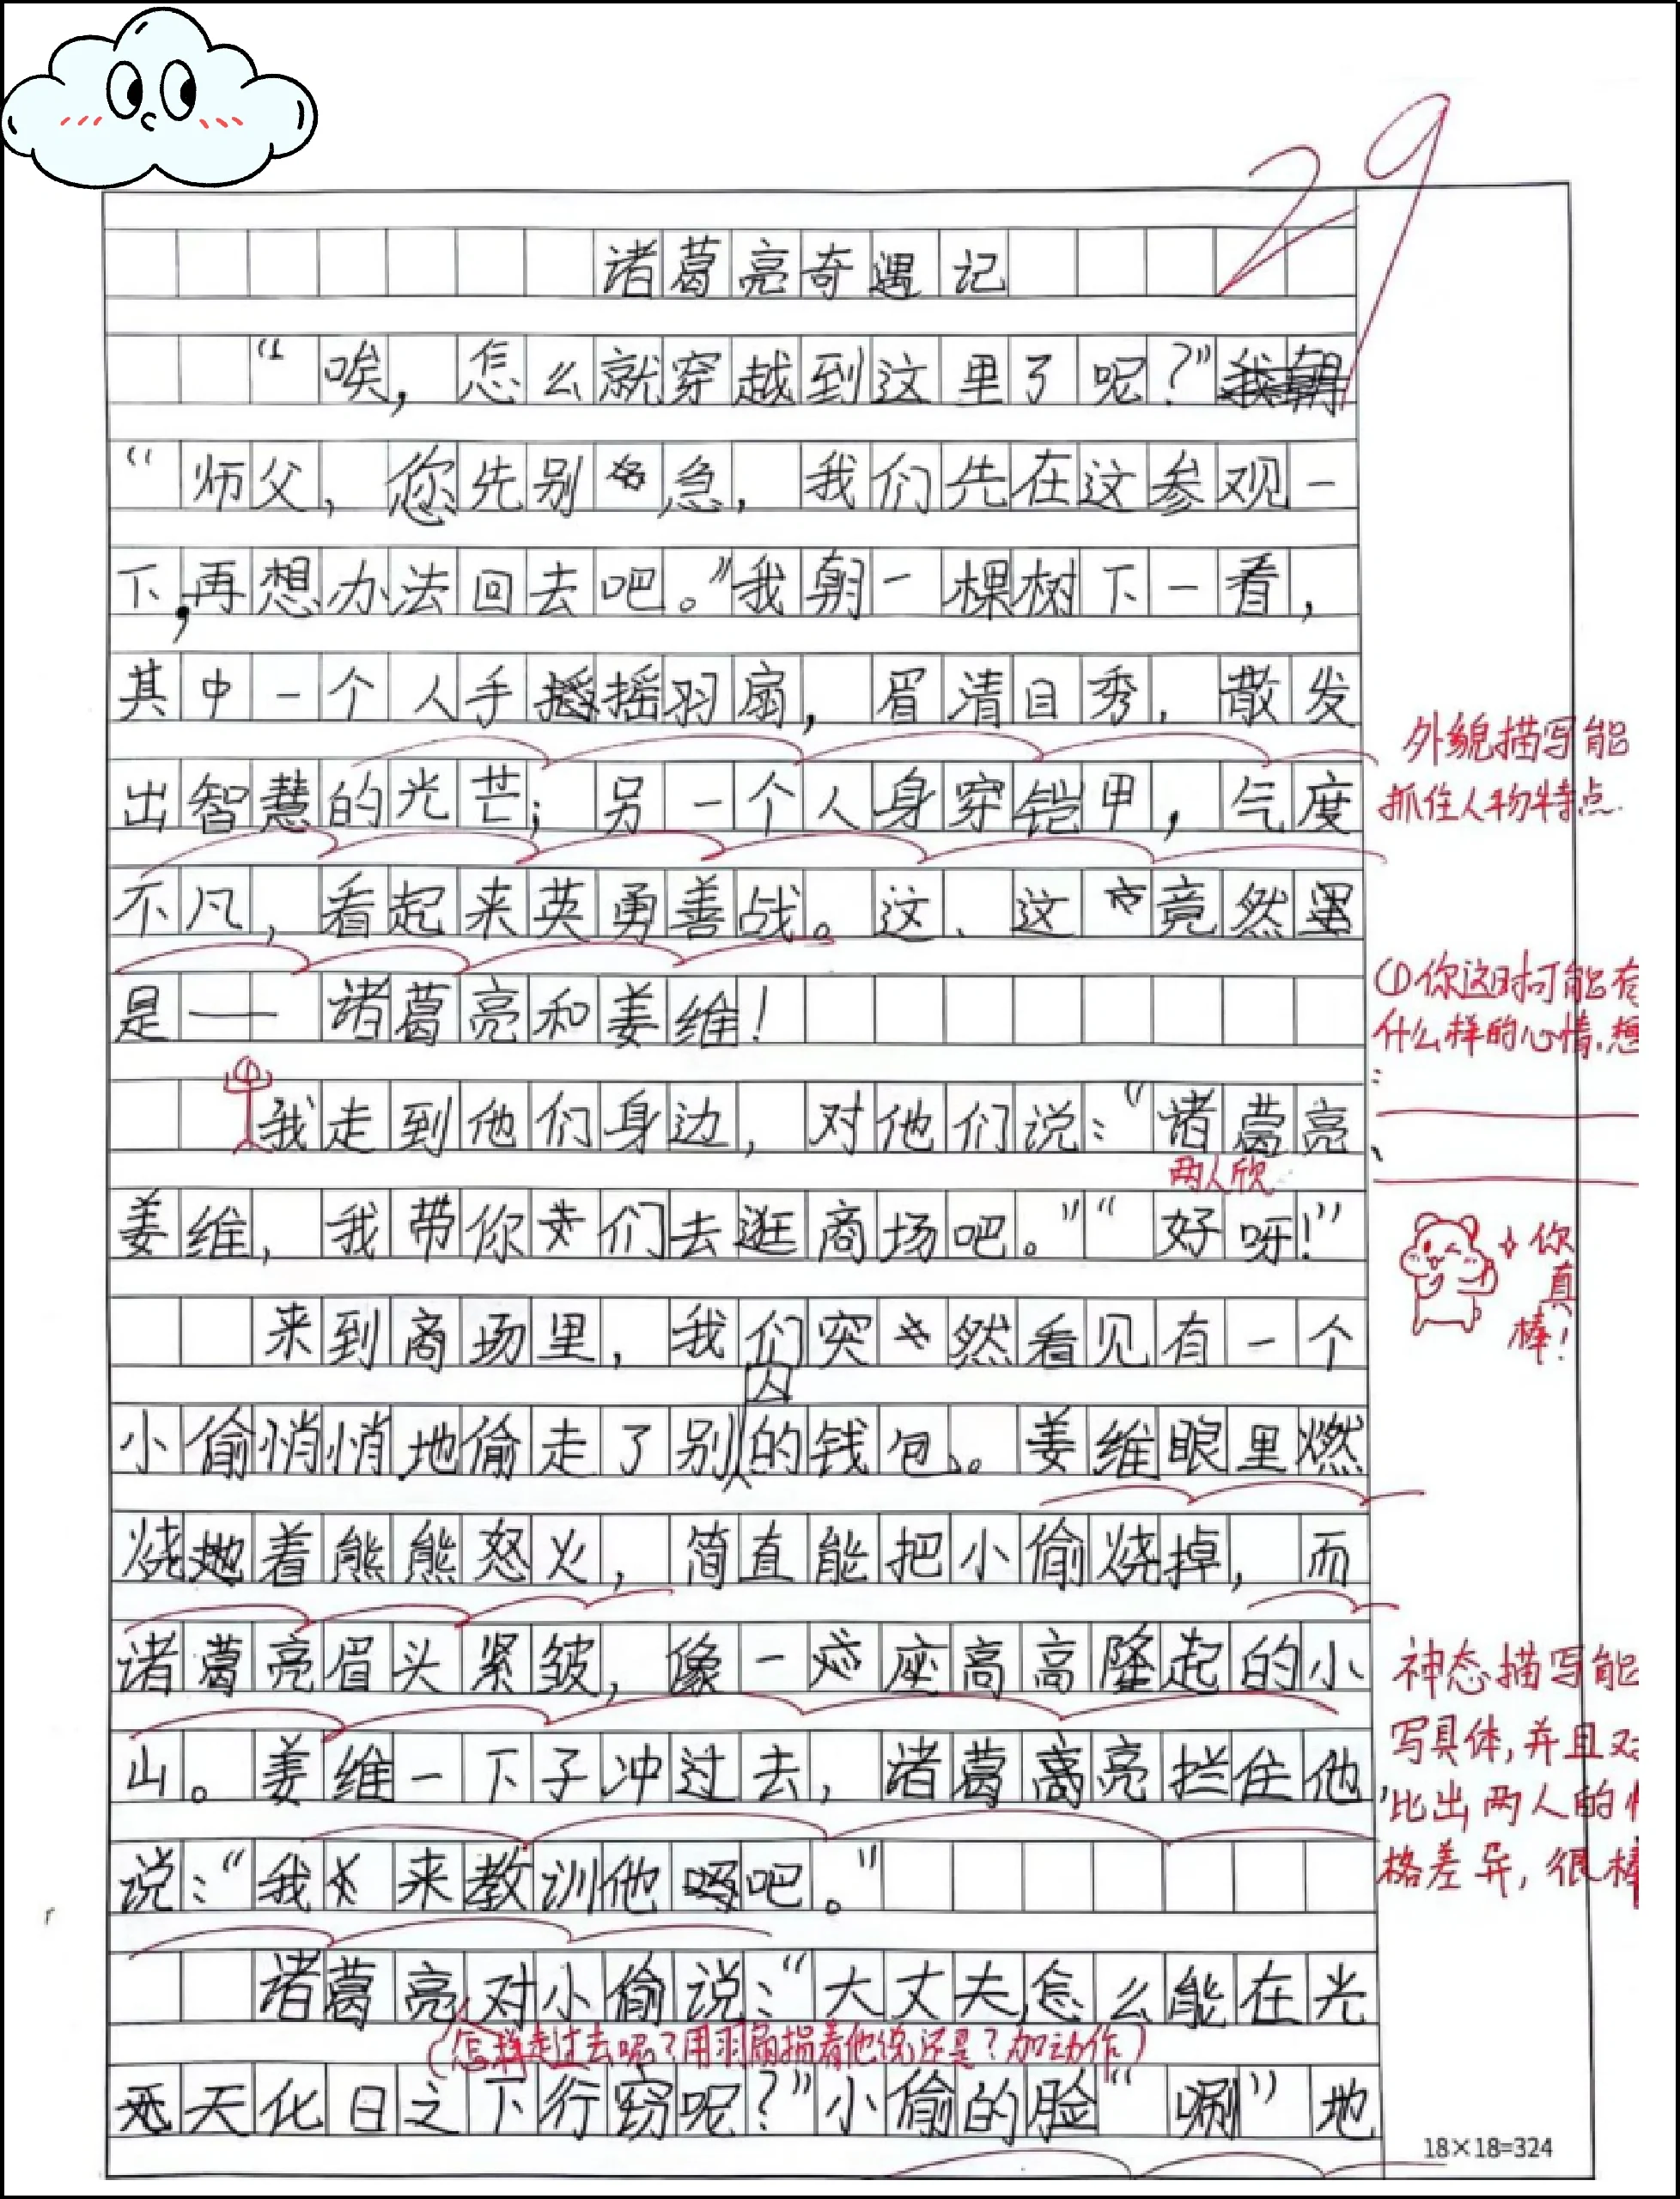 29
诸葛亮奇遇记
“唉，怎么就穿越到这里了呢？”
“师父，您先别急，我们先在这参观一
下，再想办法回去吧。”我朝一棵树下一看，
其中一个人手摇羽扇，眉清目秀，散发
出智慧的光芒；另一个人身穿铠甲，气度
不凡，看起来英勇善战。这、这竟然
是——诸葛亮和姜维！
我走到他们身边，对他们说：“诸葛亮、
姜维，我带你们去逛商场吧。”“好呀！”
来到商场里，我们突然看见有一个
小偷悄悄地偷走了别人的钱包。姜维眼里燃
烧着熊熊怒火，简直能把小偷烧掉，而
诸葛亮眉头紧皱，像一座高高隆起的小
山。姜维一下子冲过去，诸葛亮拦住他，
说：“我来教训他吧。”
诸葛亮对小偷说：“大丈夫怎么能在光
天化日之下行窃呢？”小偷的脸“唰”地
外貌描写能
抓住人物特点.
①你这时可能有
什么样的心情，想
:
两人欣
你真棒！
神态描写能
写具体，并且对
比出两人的
格差异，很棒
（怎样走过去呢？用羽扇指着他说还是？加动作）
18×18=324